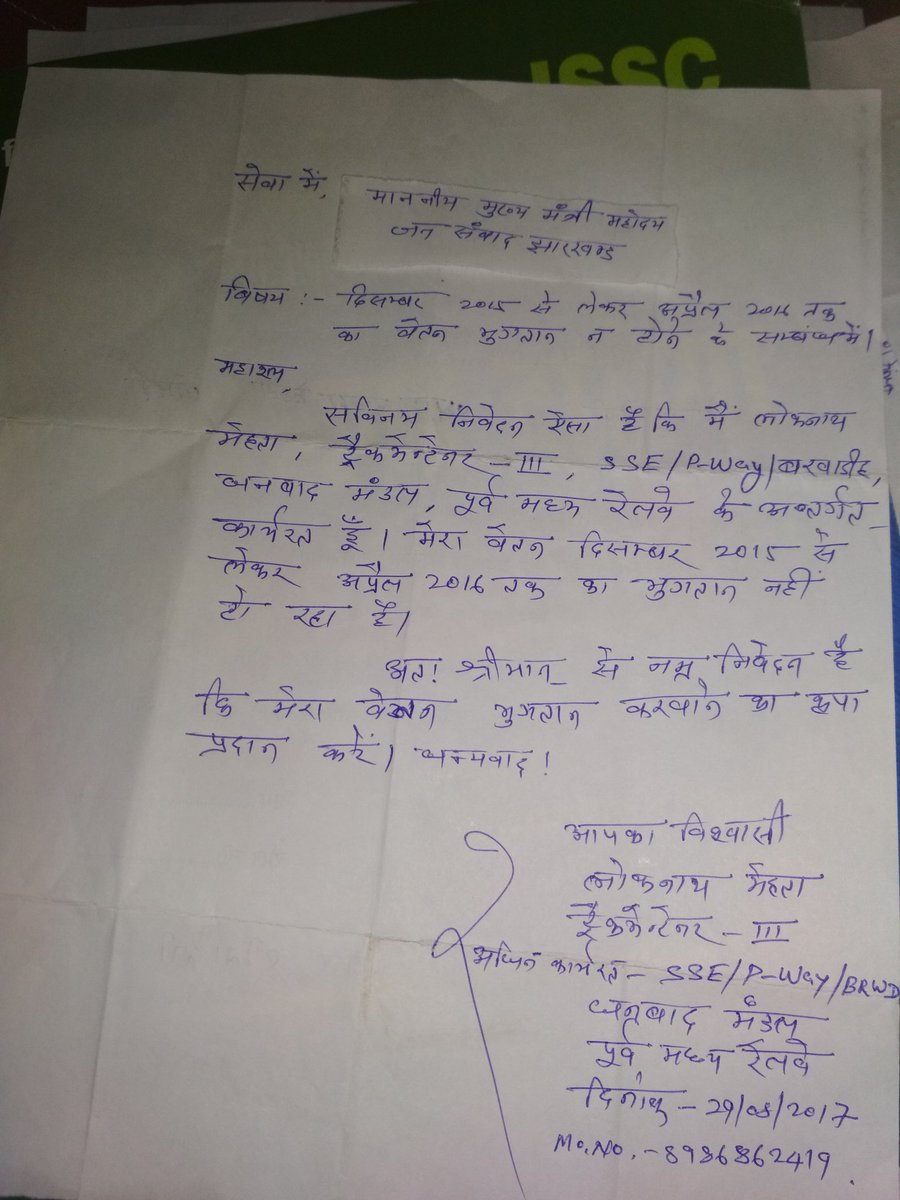 JSSC
सेवा में,
माननीय मुख्य मंत्री महोदय
जन संवाद झारखण्ड
विषय :- दिसम्बर 2015 से लेकर अप्रैल 2016 तक
का वेतन भुगतान न होने के सम्बंध में।
महाशय,
सविनय निवेदन ऐसा है कि मैं लोकनाथ
मेहता, ट्रैकमेन्टेनर - III, SSE/P-Way/बरवाडीह,
धनबाद मंडल, पूर्व मध्य रेलवे के अन्तर्गत
कार्यरत हूँ। मेरा वेतन दिसम्बर 2015 से
लेकर अप्रैल 2016 तक का भुगतान नहीं
हो रहा है।
अतः श्रीमान् से नम्र निवेदन है
कि मेरा वेतन भुगतान करवाने का कृपा
प्रदान करें। धन्यवाद!
आपका विश्वासी
लोकनाथ मेहता
ट्रैकमेन्टेनर - III
कार्यरत - SSE/P-Way/BRWD
धनबाद मंडल
पूर्व मध्य रेलवे
दिनांक - 29/08/2017
Mo.No. - 8986862419